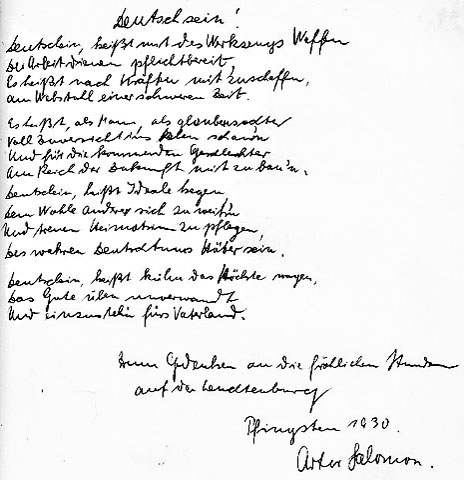 Deutschsein!
Deutschsein, heißt mit des Werkzeugs Waffen
Der Arbeit dienen pflichtbereit,
Es heißt nach Kräften mit zu schaffen,
am Webstuhl einer schweren Zeit.
Es heißt, als Mann, als
Voll Zuversicht ins Leben schau'n
Und für die kommenden Geschlechter
Am Reich der Zukunft mit zu bau'n.
Deutschsein, heißt Ideale hegen
Dem Wohle Anderer sich zu weih'n
Und treuen Heimatsinn zu pflegen,
Des wahren Deutschtums Hüter sein.
Deutschsein, heißt kühn das Höchste wagen,
Das Gute üben unverwandt
Und einzustehn fürs Vaterland.
Zum Gedenken an die fröhlichen Stunden
auf der Leuchtenburg
Pfingsten 1930.
Artur Salomon.